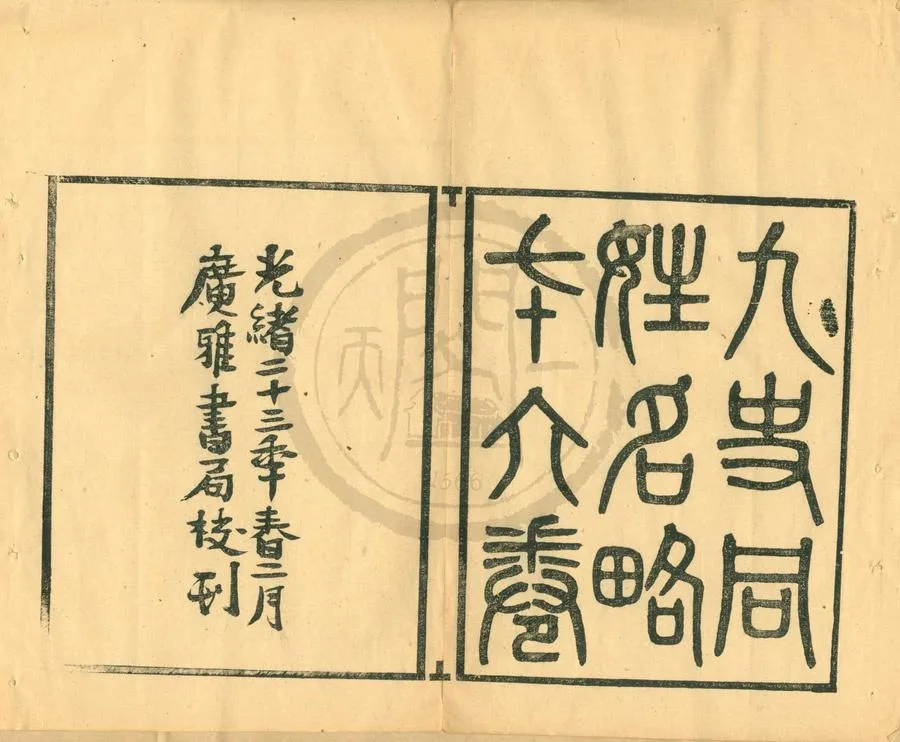 九史同
姓名略
七十六卷
光緒二十三年春二月
廣雅書局校刊
天一閣
1566